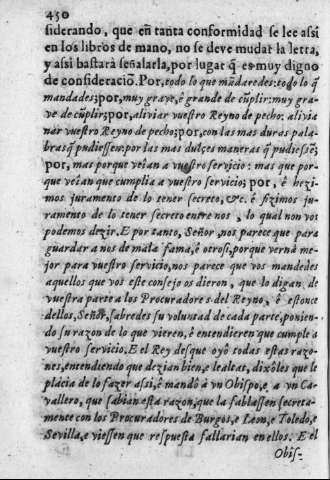 450
siderando, que en̄ tanta conformidad se lee assi
en los libros de mano, no se deve mudar la letra,
y assi bastarà señalarla, por lugar q̄ es muy digno
de consideraciō. Por, todo lo que mādaredes: todo lo q̄
mandades; por, muy grave, é grande de cūplir: muy gra-
ve de cūplir; por, aliviar vuestro Reyno de pecho: alivia
nar vuestro Reyno de pecho; por, con las mas duras pala-
bras q̄ pudiessen: por las mas dulçes maneras q̄ pudiessē;
por, mas porque veian a vuestro servicio: mas que por-
que veian que cumplia a vuestro servicio; por, é hezi-
mos juramento de lo tener secreto, &c. é fizimos ju-
ramento de lo tener secreto entre nos, lo qual non vos
podemos dezir. E por tanto, Señor, nos parece que para
guardar a nos de mala fama, é otrosi, porque vernà me-
jor para vuestro servicio, nos parece que vos mandedes
aquellos que vos este consejo os dieron, que lo digan de
vuestra parte a los Procuradores del Reyno, é estonce
dellos, Señor, sabredes su voluntad de cada parte, ponien-
do su razon de lo que vieren, é entendieren que cumple a
vuestro servicio. E el Rey desque oyô todas estas razo-
nes, entendiendo que dezian bien, e lealtas, dixôles que le
placia de lo fazer assi, é mandò à vn Obispo, e a vn Ca-
vallero, que sabian esta razon, que la fablassen secreta-
mente con los Procuradores de Burgos, e Leon, e Toledo, e
Sevilla, e viessen que respuesta fallarian en ellos. E el
Obis-